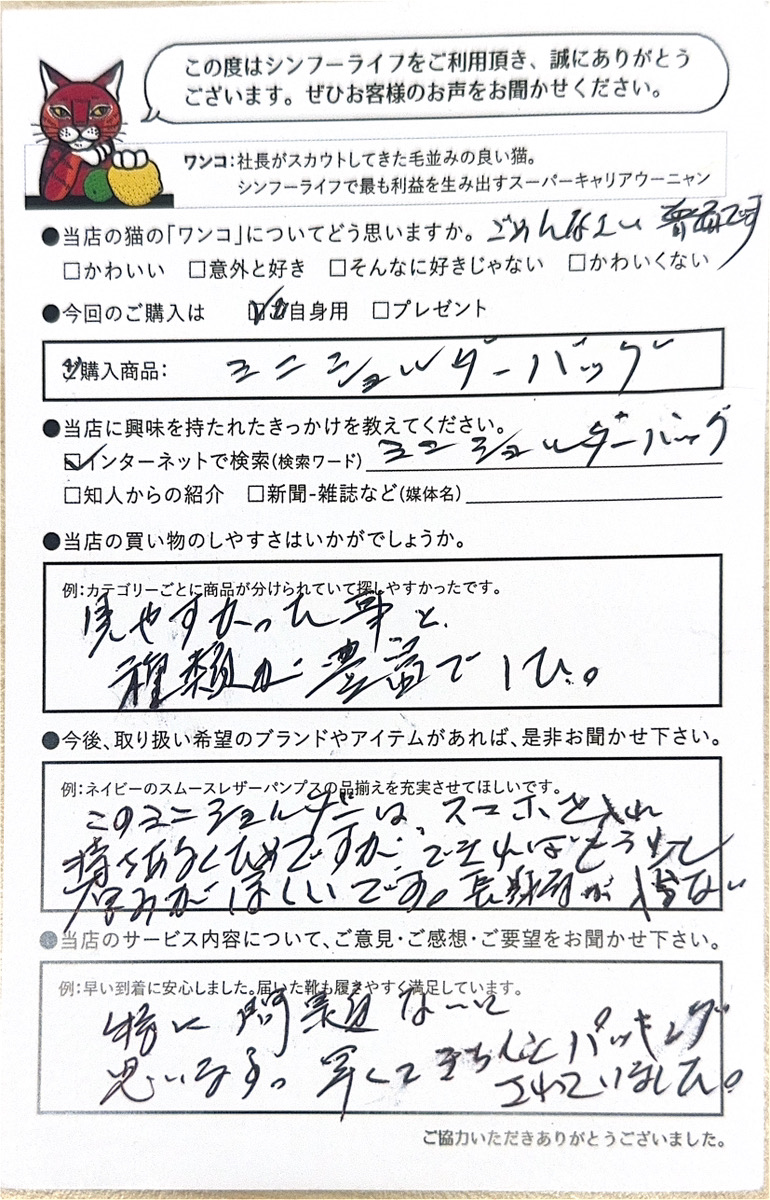 この度はシンフーライフをご利用頂き、誠にありがとう
ございます。ぜひお客様のお声をお聞かせください。
ワンコ：社長がスカウトしてきた毛並みの良い猫。
シンフーライフで最も利益を生み出すスーパーキャリアウーニャン
●当店の猫の「ワンコ」についてどう思いますか。ごめんなさい 普通です
□かわいい □意外と好き □そんなに好きじゃない □かわいくない
●今回のご購入は ☑ご自身用 □プレゼント
ご購入商品： ミニショルダーバッグ
●当店に興味を持たれたきっかけを教えてください。
☑インターネットで検索(検索ワード) ミニショルダーバッグ
□知人からの紹介 □新聞-雑誌など(媒体名)
●当店の買い物のしやすさはいかがでしょうか。
例：カテゴリーごとに商品が分けられていて探しやすかったです。
見やすかった事と
種類が豊富でした。
●今後、取り扱い希望のブランドやアイテムがあれば、是非お聞かせ下さい。
例：ネイビーのスムースレザーパンプスの品揃えを充実させてほしいです。
このミニショルダーは、スマホを入れ
持ちあるくためですが、できればもう少し
厚みがほしいです。長財布が入らない
●当店のサービス内容について、ご意見・ご感想・ご要望をお聞かせ下さい。
例：早い到着に安心しました。届いた靴も履きやすく満足しています。
特に問題ないと
思います。早くてきちんとパッキング
されていました。
ご協力いただきありがとうございました。